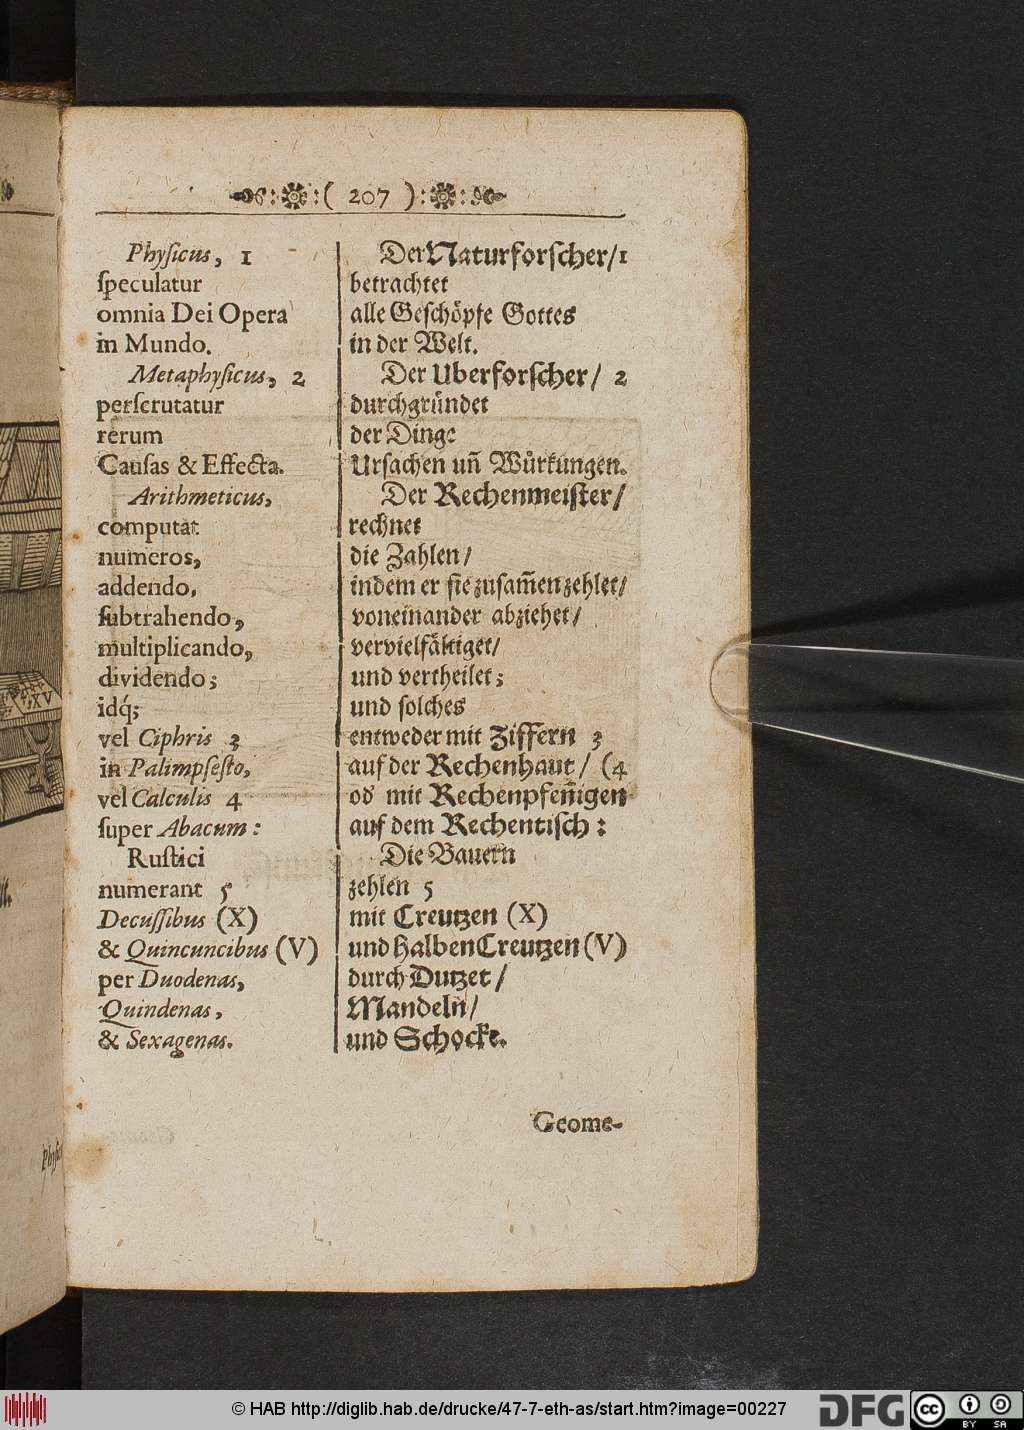 ( 207 )
Physicus, 1
speculatur
omnia Dei Opera
in Mundo.
Metaphysicus, 2
perscrutatur
rerum
Causas & Effecta.
Arithmeticus,
computat
numeros,
addendo,
subtrahendo,
multiplicando,
dividendo;
idq́;
vel Ciphris 3
in Palimpsesto,
vel Calculis 4
super Abacum:
Rustici
numerant 5
Decussibus (X)
& Quincuncibus (V)
per Duodenas,
Quindenas,
& Sexagenas.
Der Naturforscher/1
betrachtet
alle Geschöpfe Gottes
in der Welt.
Der Uberforscher/ 2
durchgründet
der Dinge
Ursachen uñ Würkungen.
Der Rechenmeister/
rechnet
die Zahlen/
indem er sie zusam̃enzehlet/
voneinander abziehet/
vervielfältiget/
und vertheilet;
und solches
entweder mit Ziffern 3
auf der Rechenhaut/ (4
od' mit Rechenpfeñigen
auf dem Rechentisch:
Die Bauern
zehlen 5
mit Creutzen (X)
und halben Creutzen (V)
durch Dutzet/
Mandeln/
und Schocke.
Geome-
© HAB http://diglib.hab.de/drucke/47-7-eth-as/start.htm?image=00227
DFG
cc
BY SA